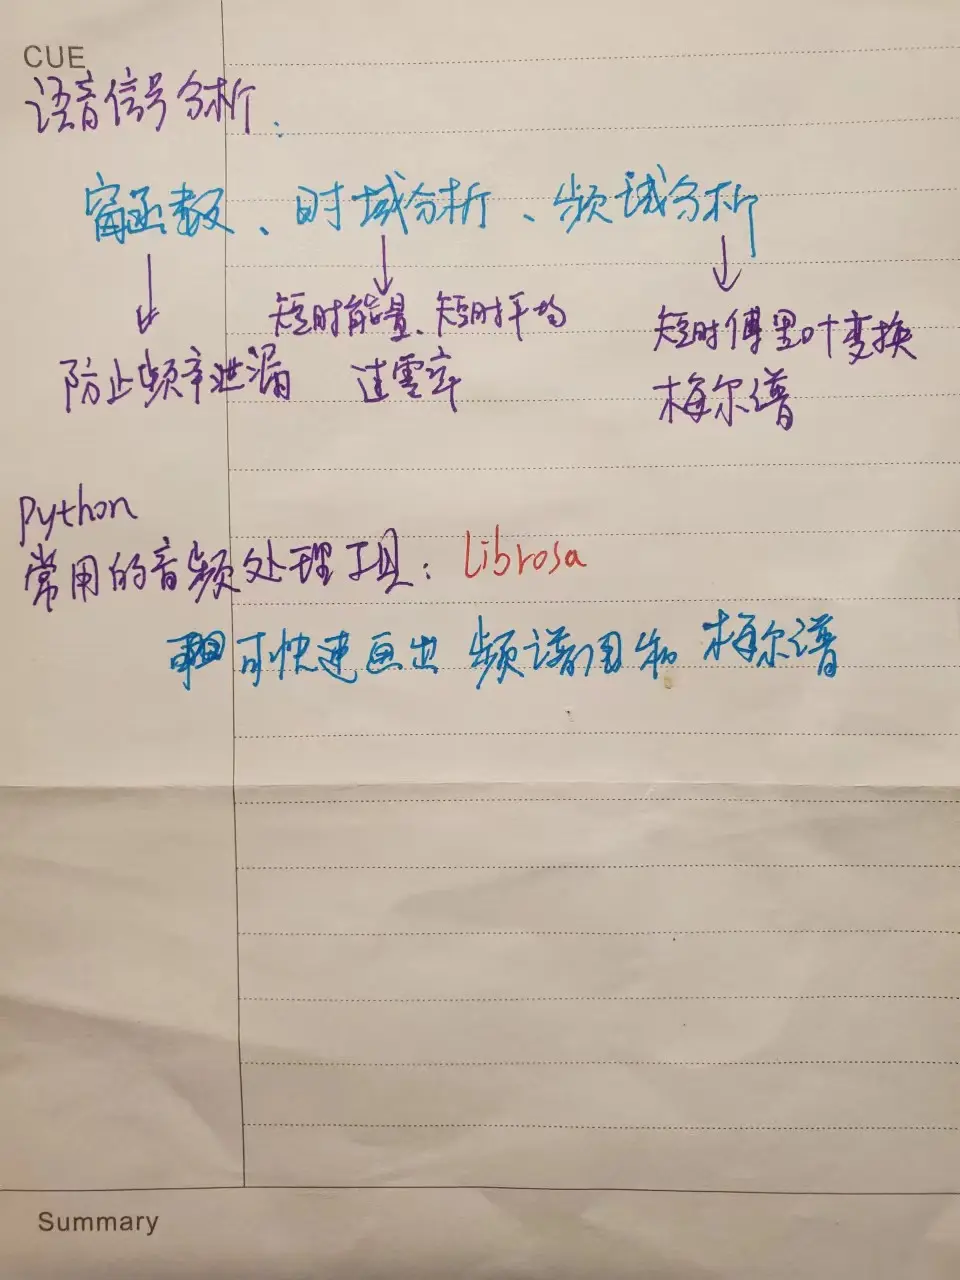 CUE
语音信号分析:
窗函数、时域分析、频域分析
短时能量、短时平均
过零率
防止频率泄漏
短时傅里叶变换
梅尔谱
Python
常用的音频处理工具: Librosa
可快速画出 频谱图和 梅尔谱
Summary